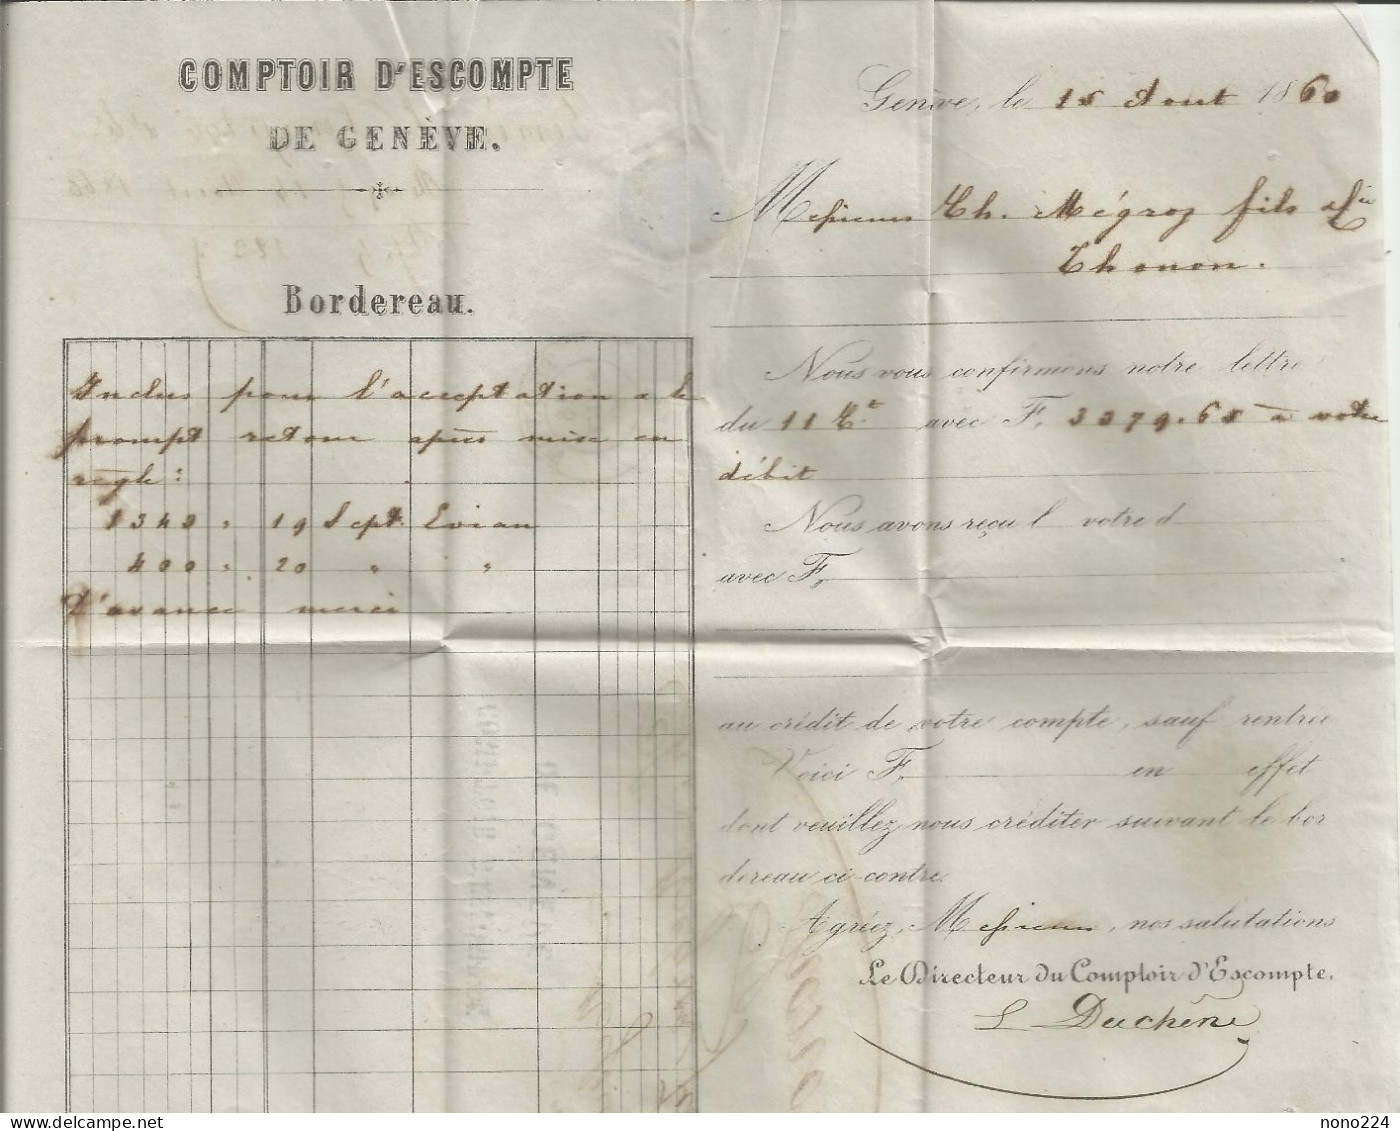 COMPTOIR D'ESCOMPTE
DE GENÈVE.
Bordereau.
Inclus pour l'acceptation & le
prompt retour après mise en
règle:
1340 " 19 Sept. Evian
400 " 20 " "
D'avance merci
Genève, le 15 Aout 1860
Messieurs Ch. Mégroz fils & Cie
Thonon.
Nous vous confirmons notre lettre
du 11 Ct. avec F. 3379.65 à votre
débit
Nous avons reçu l votre d
avec F.
au crédit de votre compte, sauf rentrée
Voici F. en effet
dont veuillez nous créditer suivant le bor
dereau ci-contre.
Agréez, Messieurs, nos salutations
Le Directeur du Comptoir d'Escompte.
L Duchêne
nono224